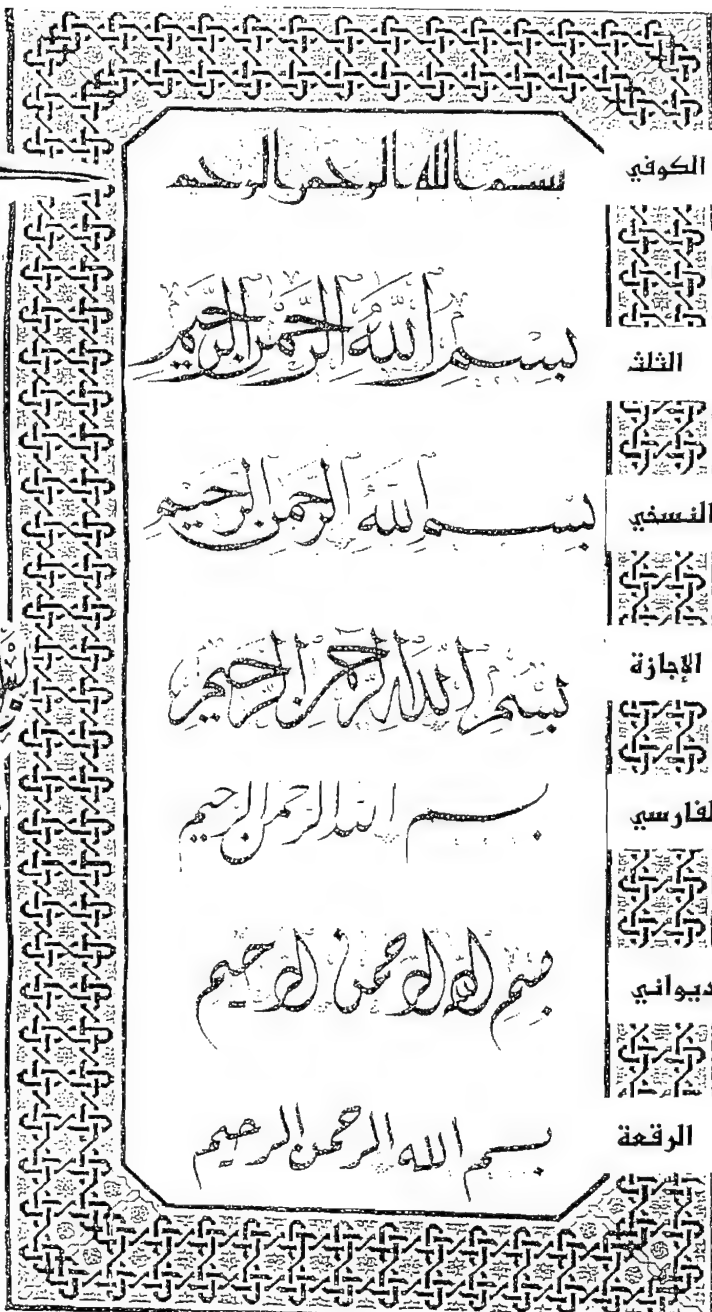 الكوفي
بسم الله الرحمن الرحيم
الثلث
بِسْمِ اللَّهِ الرَّحْمَنِ الرَّحِيمِ
النسخي
بِسْمِ اللَّهِ الرَّحْمَنِ الرَّحِيمِ
الإجازة
بِسْمِ اللَّهِ الرَّحْمَنِ الرَّحِيمِ
لفارسي
بسم الله الرحمن الرحيم
ديواني
بسم الله الرحمن الرحيم
الرقعة
بسم الله الرحمن الرحيم